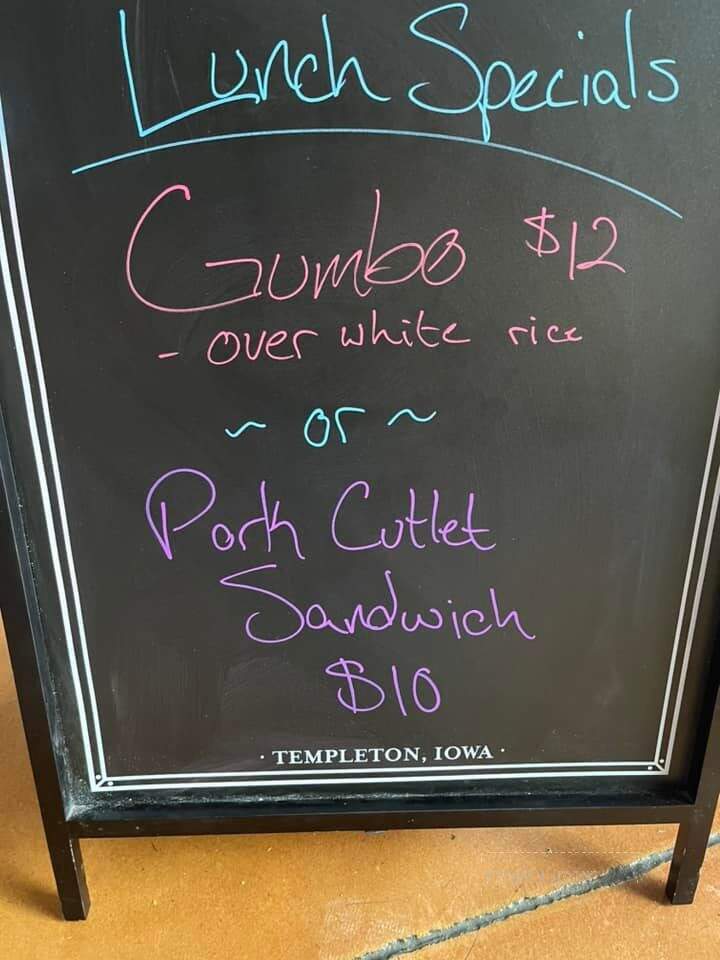 Lunch Specials
Gumbo $12
- over white rice
~ or ~
Pork Cutlet
Sandwich
$10
· TEMPLETON, IOWA ·